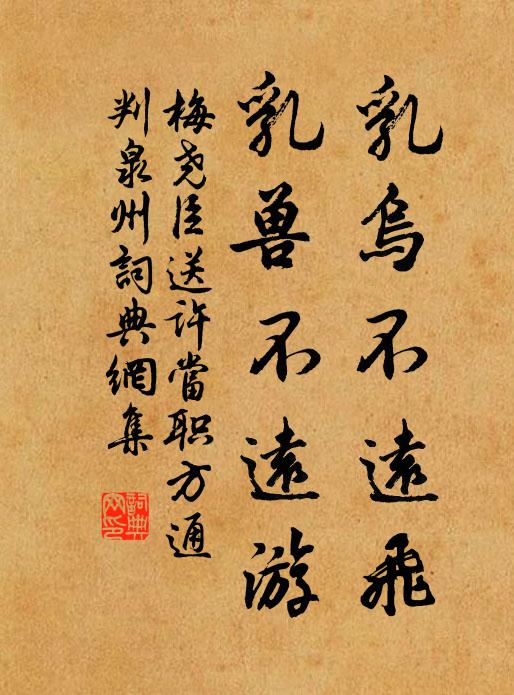 乳烏不遠飛
乳兽不遠游
梅尧臣送许當职方通
判泉州詞典網集
詞典
网印